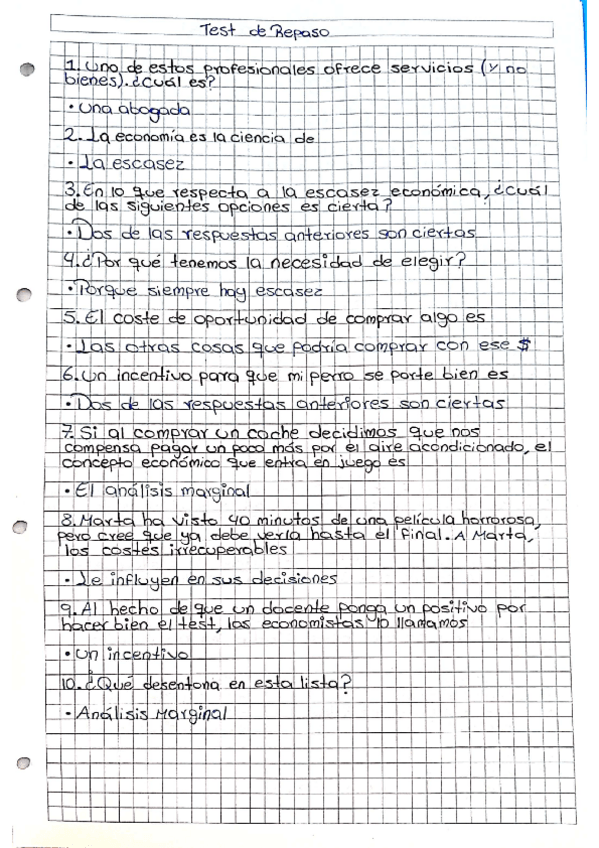 Test de Repaso
1. Uno de estos profesionales ofrece servicios (y no
bienes). ¿Cuál es?
• Una abogada
2. La economía es la ciencia de
• La escasez
3. En lo que respecta a la escasez económica, ¿cuál
de las siguientes opciones es cierta?
• Dos de las respuestas anteriores son ciertas
4. ¿Por qué tenemos la necesidad de elegir?
• Porque siempre hay escasez
5. El coste de oportunidad de comprar algo es
• Las otras cosas que podría comprar con ese $
6. Un incentivo para que mi perro se porte bien es
• Dos de las respuestas anteriores son ciertas
7. Si al comprar un coche decidimos que nos
compensa pagar un poco más por el aire acondicionado, el
concepto económico que entra en juego es
• El análisis marginal
8. Marta ha visto 40 minutos de una película horrorosa,
pero cree que ya debe verla hasta el final. A Marta,
los costes irrecuperables
• Le influyen en sus decisiones
9. Al hecho de que un docente ponga un positivo por
hacer bien el test, los economistas lo llamamos
• Un incentivo
10. ¿Qué desentona en esta lista?
• Análisis Marginal